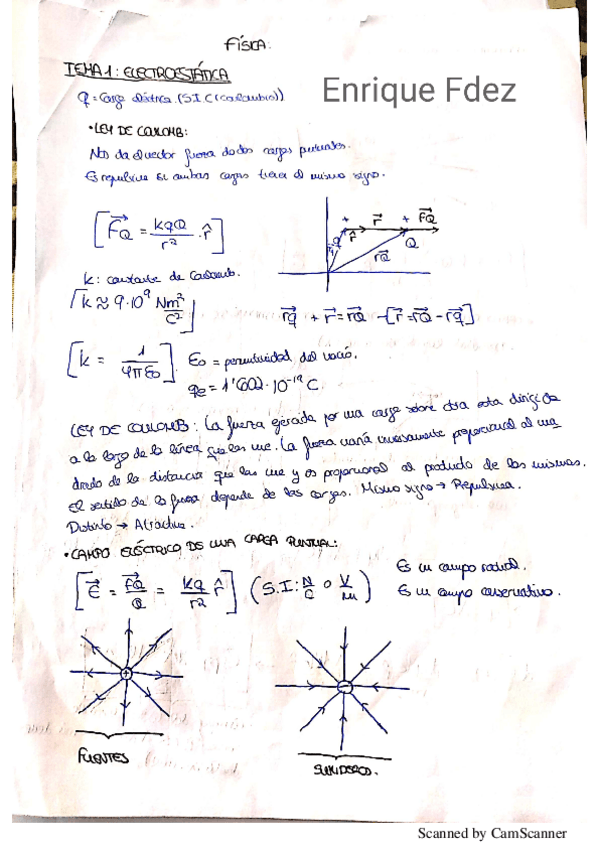 FÍSICA:
TEMA 1: ELECTROESTÁTICA
Enrique Fdez
q = Carga eléctrica. (S.I. C (Coulombio))
• LEY DE COULOMB:
Nos da el vector fuerza de dos cargas puntuales.
Es repulsiva si ambas cargas tienen el mismo signo.
[F⃗Q = kqQ/r² · r̂]
+ r⃗ + F⃗Q
q r̂ Q
r⃗q r⃗Q
k: constante de Coulomb.
[k ≈ 9·10⁹ Nm²/C²]
r⃗q + r⃗ = r⃗Q → [r⃗ = r⃗Q - r⃗q]
[k = 1/4πε₀] ε₀ = permitividad del vacío.
qe = 1'602·10⁻¹⁹ C.
LEY DE COULOMB: La fuerza ejercida por una carga sobre otra esta dirigida
a lo largo de la línea que las une. La fuerza varía inversamente proporcional al cua
drado de la distancia que las une y es proporcional al producto de las mismas.
El sentido de la fuerza depende de las cargas. Mismo signo → Repulsiva.
Distinto → Atractiva.
• CAMPO ELÉCTRICO DE UNA CARGA PUNTUAL:
[E⃗ = F⃗Q/Q = kq/r² r̂] (S.I: N/C o V/m)
Es un campo radial.
Es un campo conservativo.
+
-
FUENTES
SUMIDEROS.
Scanned by CamScanner